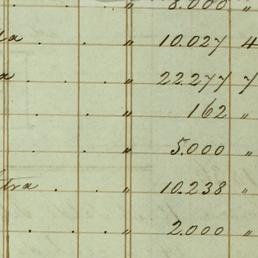 . . " 8.000 "
. . " 10.027 4
a . . " 22.277 7
. . " 162 "
. . " 5.000 "
tra . . " 10.238 "
. . " 2.000 "